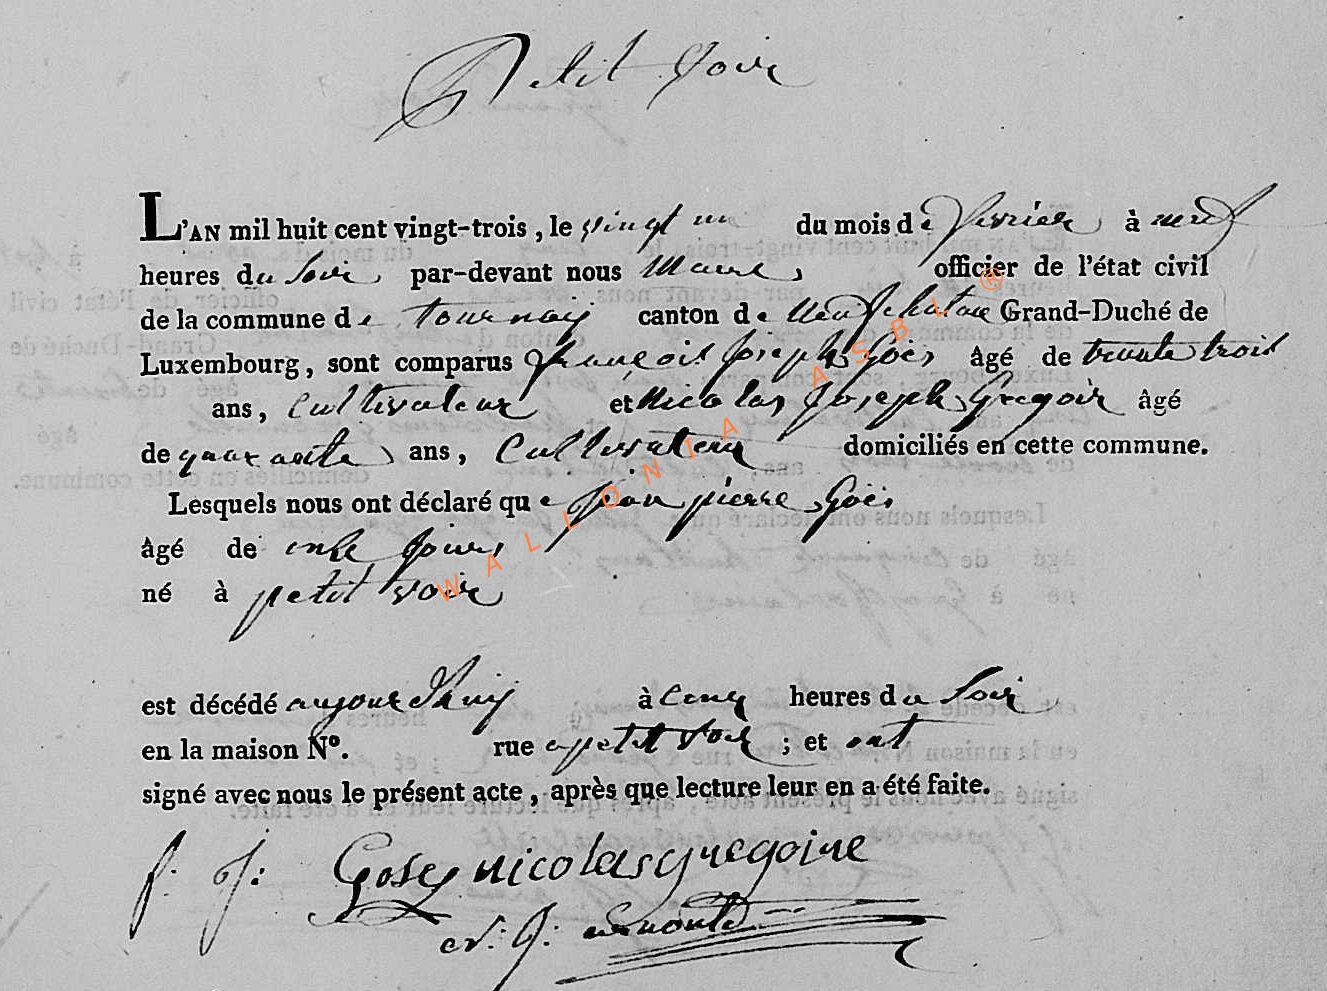 Petit Voir
L'AN mil huit cent vingt-trois, le vingt un du mois de fevrier à neuf
heures du soir par-devant nous Maire, officier de l'état civil
de la commune de tournay canton de Neufchateau Grand-Duché de
Luxembourg, sont comparus françois Joseph Goës âgé de trente trois
ans, Cultivateur et Nicolas Joseph Gregoir âgé
de quarante ans, Cultivateur domiciliés en cette commune.
Lesquels nous ont déclaré que Jean pierre Goës
âgé de onze jours
né à petit voir
est décédé aujourdhuy à cinq heures du soir
en la maison N°. rue a petit voir ; et ont
signé avec nous le présent acte, après que lecture leur en a été faite.
f: J: Gosey nicolas gregoire
J:
WALLONIA ASBL ®